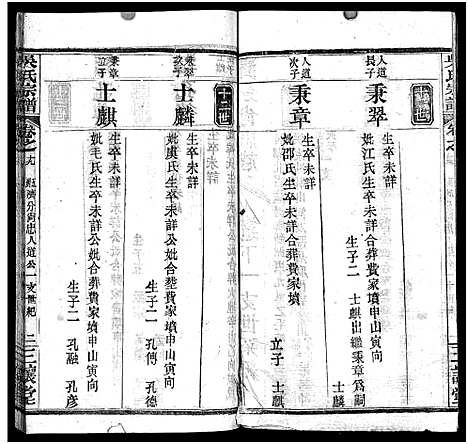 十一世
人道長子
秉翠
生卒未詳
妣江氏生卒未詳合葬費家墳申山寅向
生子二 士麒出繼秉章為嗣
人道次子
秉章
生卒未詳
妣邵氏生卒未詳合葬費家墳
立子 士麒
十二世
秉翠之子
士麟
生卒未詳
妣虞氏生卒未詳公妣合塟費家墳申山寅向
生子二 孔傅 孔德
秉章立子
士麒
妣毛氏生卒未詳公妣合葬費家墳申山寅向
生子二 孔融 孔彥
吳氏宗譜
卷之九
經濟分寅忠人道公一支世紀
三讓堂